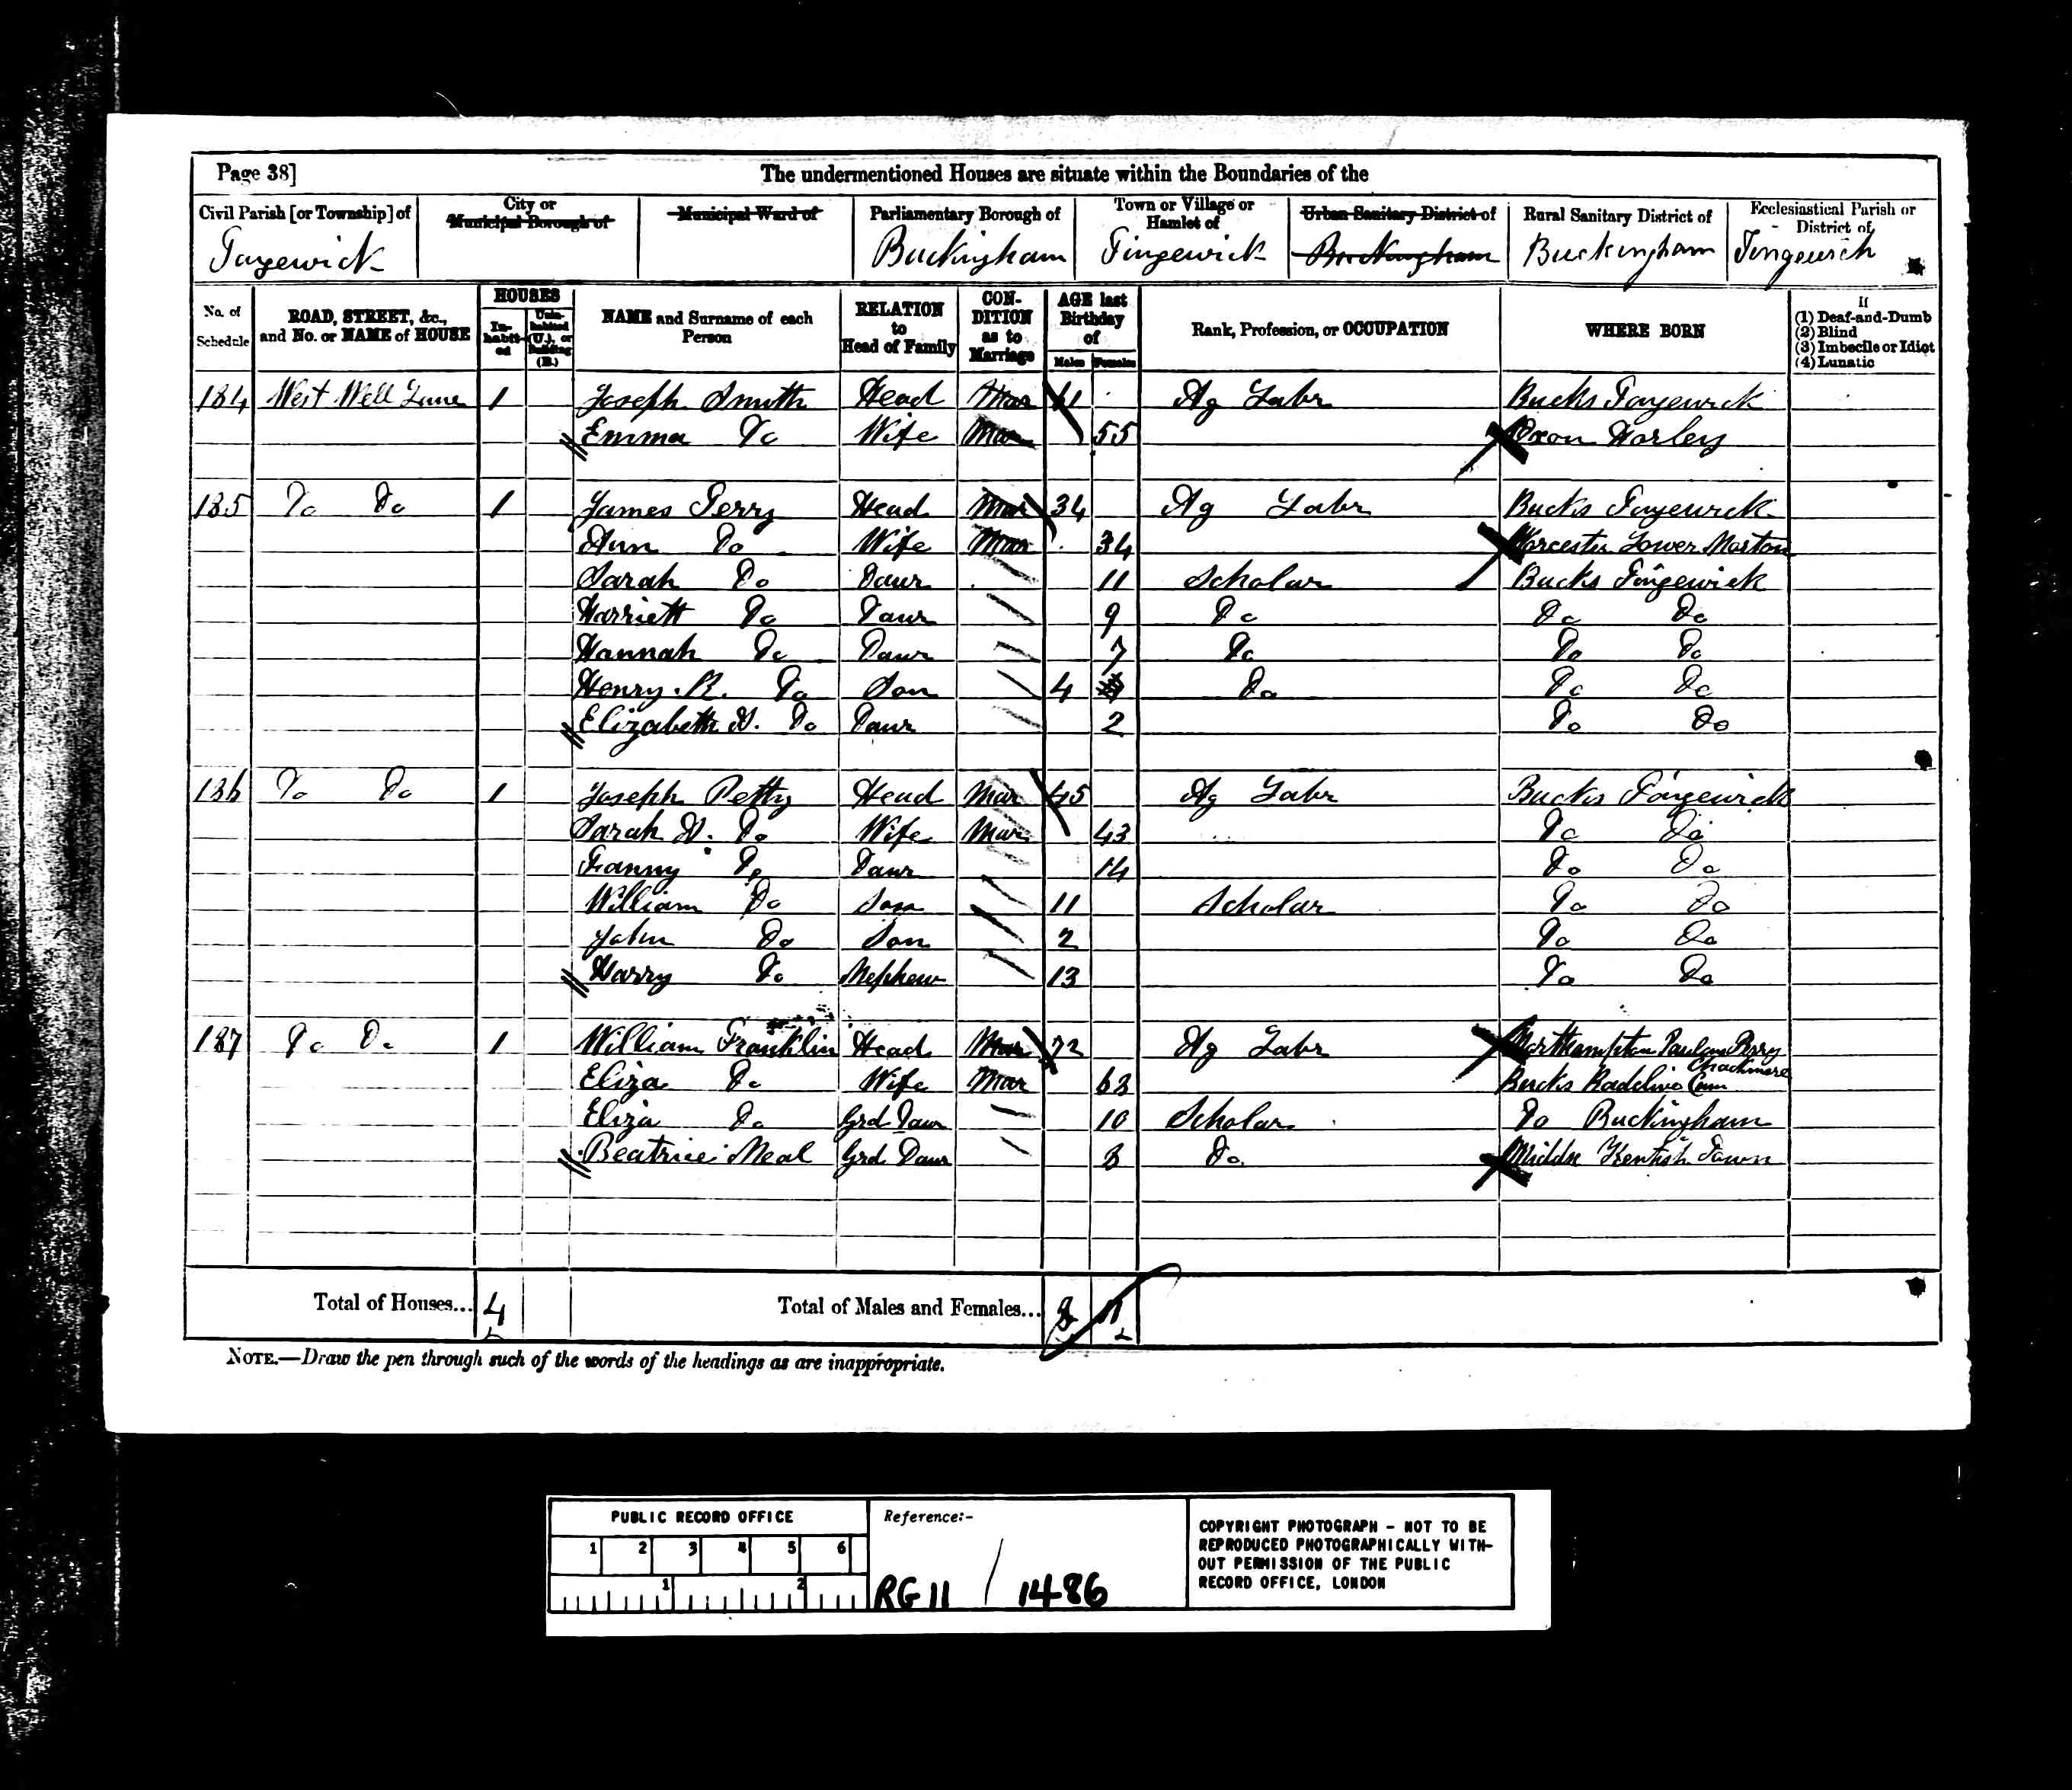 Page 38]
The undermentioned Houses are situate within the Boundaries of the
Civil Parish [or Township] of
City or Municipal Borough of
Municipal Ward of
Parliamentary Borough of
Town or Village or Hamlet of
Urban Sanitary District of
Rural Sanitary District of
Ecclesiastical Parish or District of
Tingewick Buckingham Tingewick Buckingham Buckingham Tingewick
No. of Schedule
ROAD, STREET, &c., and No. or NAME of HOUSE
HOUSES
In-habit-ed
Unin-habited (U.), or Building (B.)
NAME and Surname of each Person
RELATION to Head of Family
CON-DITION as to Marriage
AGE last Birthday of
Males Females
Rank, Profession, or OCCUPATION
WHERE BORN
If
(1) Deaf-and-Dumb
(2) Blind
(3) Imbecile or Idiot
(4) Lunatic
184 West Well Lane 1 Joseph Smith Head Mar 61 Ag Labr Bucks Tingewick
Emma Do Wife Mar 55 Oxon Horley
185 Do Do 1 James Perry Head Mar 34 Ag Labr Bucks Tingewick
Ann Do Wife Mar 34 Worcester Lower Marton
Sarah Do Daur 11 Scholar Bucks Tingewick
Harriett Do Daur 9 Do Do Do
Hannah Do Daur 7 Do Do Do
Henry. R. Do Son 4 Do Do Do
Elizabeth Do Daur 2 Do Do
186 Do Do 1 Joseph Petty Head Mar 45 Ag Labr Bucks Tingewick
Sarah Do Wife Mar 43 Do Do
Fanny Do Daur 14 Do Do
William Do Son 11 Scholar Do Do
John Do Son 2 Do Do
Harry Do Nephew 13 Do Do
187 Do Do 1 William Franklin Head Mar 72 Ag Labr Northampton Paulers Perry
Eliza Do Wife Mar 63 Bucks Radclive Cum Chackmore
Eliza Do Grd Daur 10 Scholar Do Buckingham
Beatrice Neal Grd Daur 8 Do Middx Kentish Town
Total of Houses... 4
Total of Males and Females... 8 11
NOTE.—Draw the pen through such of the words of the headings as are inappropriate.
PUBLIC RECORD OFFICE
1 2 3 4 5 6
1 2
Reference:-
RG 11 / 1486
COPYRIGHT PHOTOGRAPH - NOT TO BE
REPRODUCED PHOTOGRAPHICALLY WITH-
OUT PERMISSION OF THE PUBLIC
RECORD OFFICE, LONDON